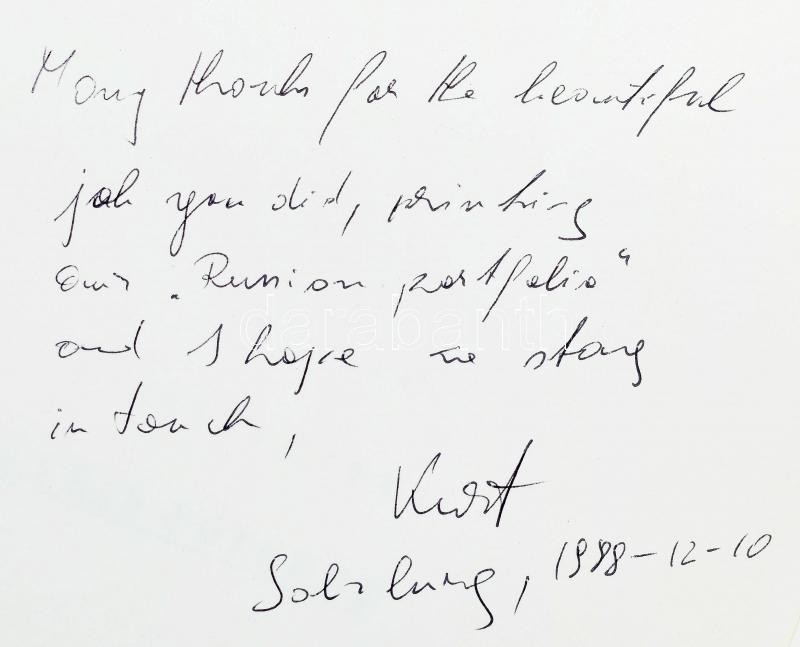 Many thanks for the beautiful
job you did, printing
our „Russian portfolio“
darabanth
and I hope we stay
in touch,
Kurt
Salzburg, 1998-12-10